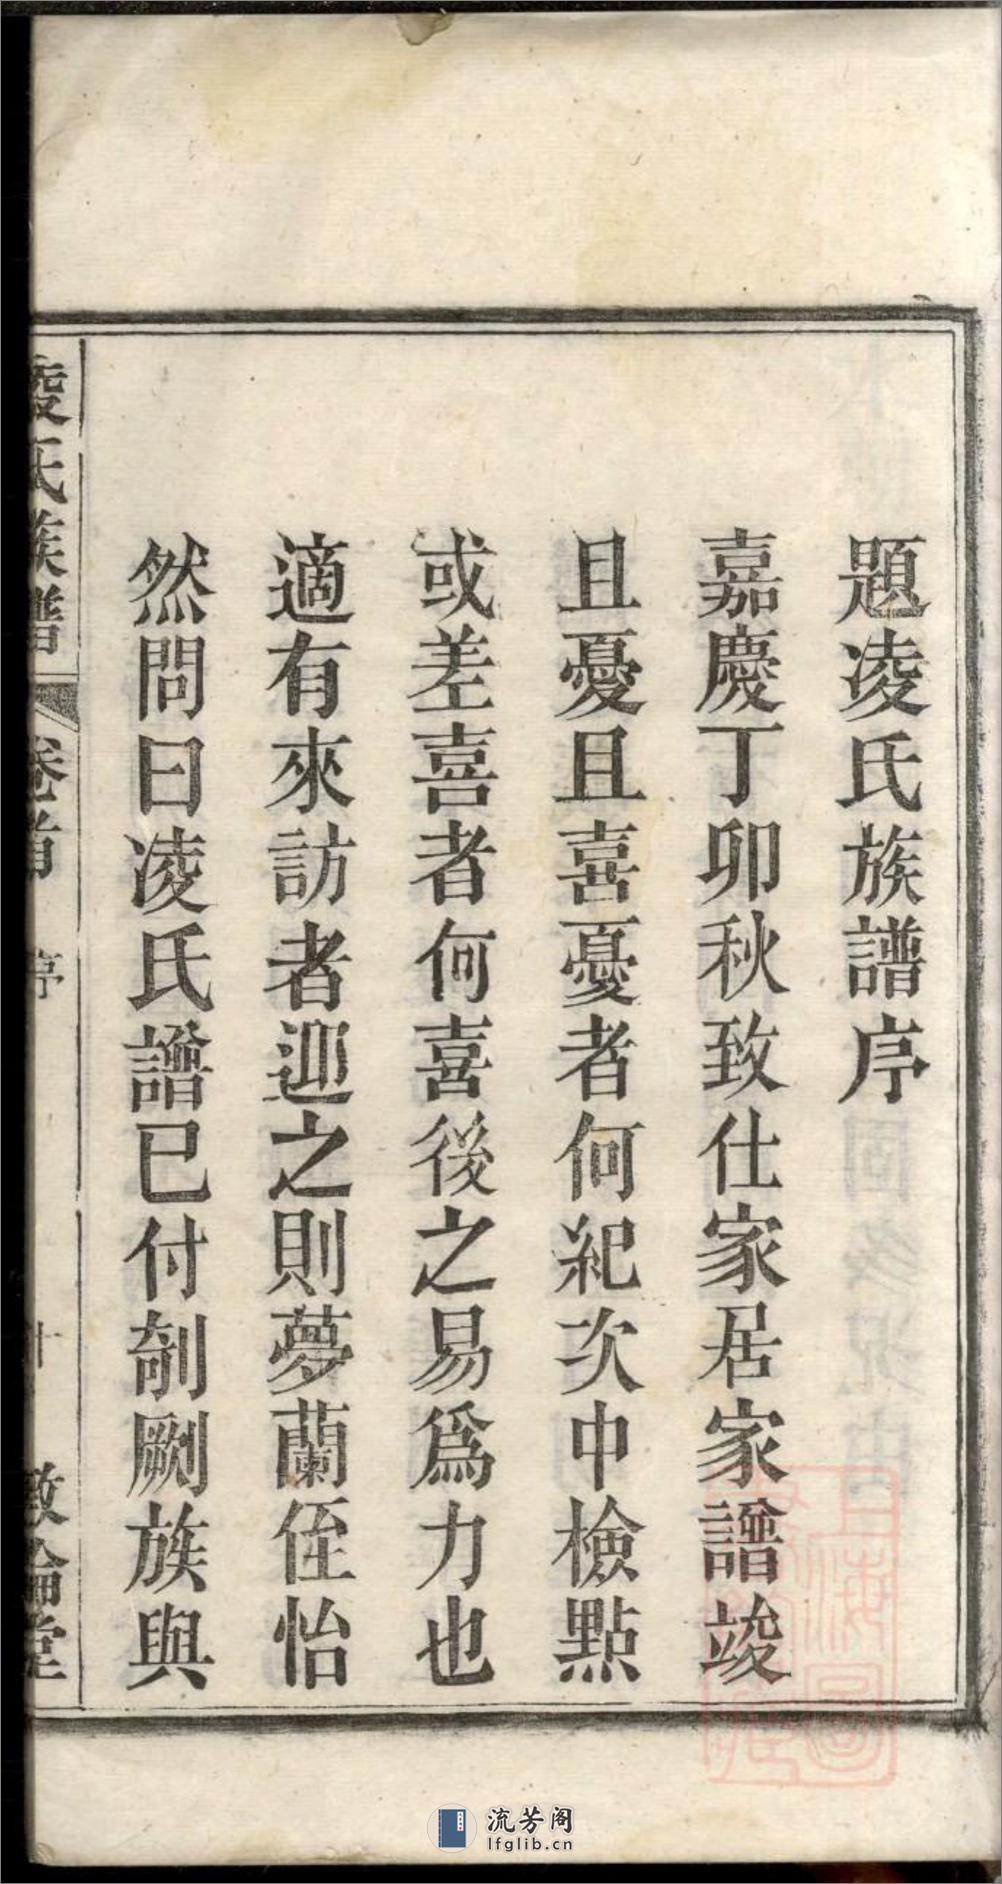 題凌氏族譜序
嘉慶丁卯秋致仕家居家譜竣
且憂且喜憂者何紀次中檢點
或差喜者何喜後之易爲力也
適有來訪者迎之則夢蘭侄怡
然問曰凌氏譜已付剞劂族與
凌氏族譜 卷首 序 十 敦倫堂
流芳阁
lfglib.cn